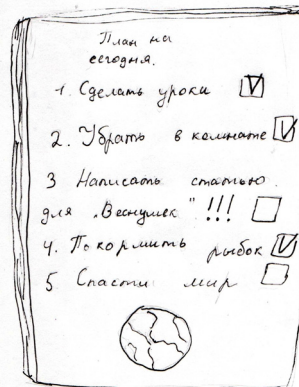 План на
сегодня.
1. Сделать уроки
2. Убрать в комнате
3 Написать статью
для "Веснушек" !!!
4. Покормить рыбок
5 Спасти мир